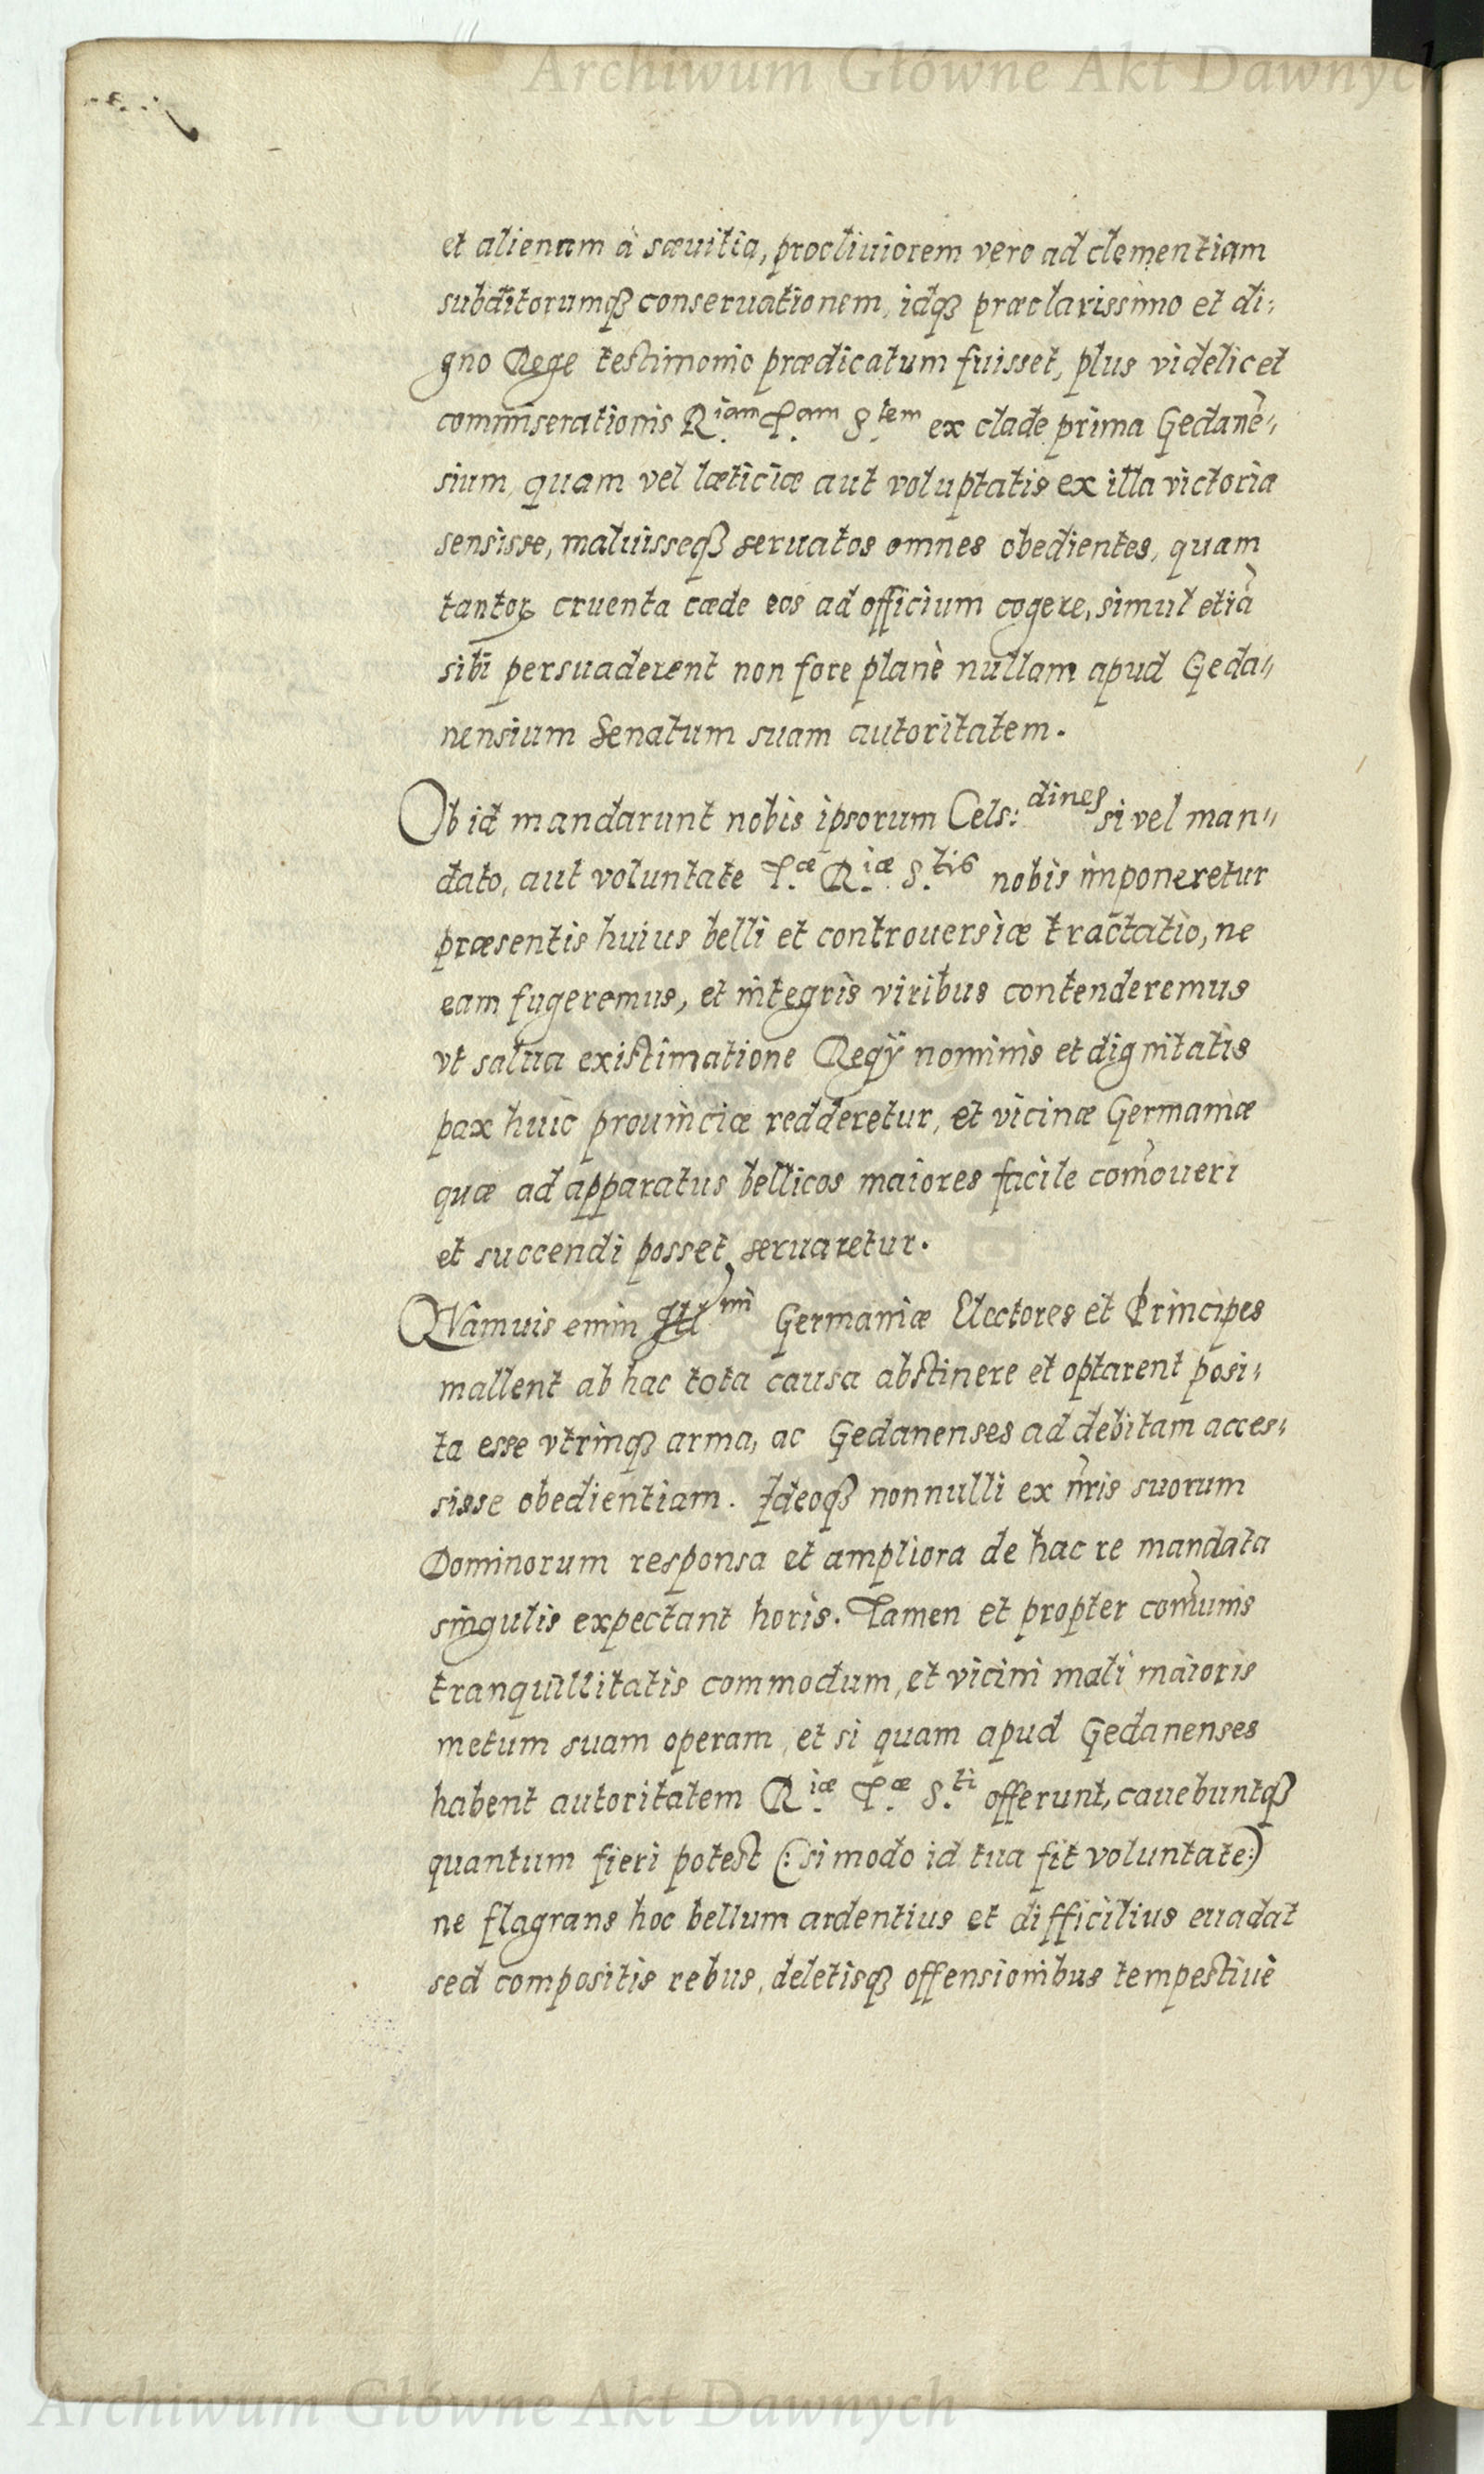 Archiwum Główne Akt Dawnych
et alienam à sæuitia, procliuiorem vero ad clementiam
subditorumqꝫ conseruationem, idqꝫ præclarissimo et di-
gno Rege testimonio prædicatum fuisset, plus videlicet
commiserationis R.iam T.am S.tem ex clade prima Gedanē-
sium, quam vel læticiæ aut voluptatis ex illa victoria
sensisse, maluisseqꝫ seruatos omnes obedientes, quam
tantoꝝ cruenta cæde eos ad officium cogere, simul etiā
sibi persuaderent non fore planè nullam apud Geda-
nensium Senatum suam autoritatem.
Ob id mandarunt nobis ipsorum Cels:dines si vel man-
dato, aut voluntate T.æ R.iæ S.tis nobis imponeretur
præsentis huius belli et controuersiæ tractatio, ne
eam fugeremus, et integris viribus contenderemus
vt salua existimatione Regij nominis et dignitatis
pax huic prouinciæ redderetur, et vicinæ Germaniæ
quæ ad apparatus bellicos maiores facile com̄oueri
et succendi posset, seruaretur.
QVamuis enim Illmi Germaniæ Electores et Principes
mallent ab hac tota causa abstinere et optarent posi-
ta esse vtrinqꝫ arma, ac Gedanenses ad debitam acces-
sisse obedientiam. Ideoqꝫ nonnulli ex nr̄is suorum
Dominorum responsa et ampliora de hac re mandata
singulis expectant horis. Tamen et propter com̄unis
tranquillitatis commodum, et vicini mali maioris
metum suam operam, et si quam apud Gedanenses
habent autoritatem R.iæ T.æ S.ti offerunt, cauebuntqꝫ
quantum fieri potest (: si modo id tua fit voluntate :)
ne flagrans hoc bellum ardentius et difficilius euadat
sed compositis rebus, deletisqꝫ offensionibus tempestiuè
Archiwum Główne Akt Dawnych